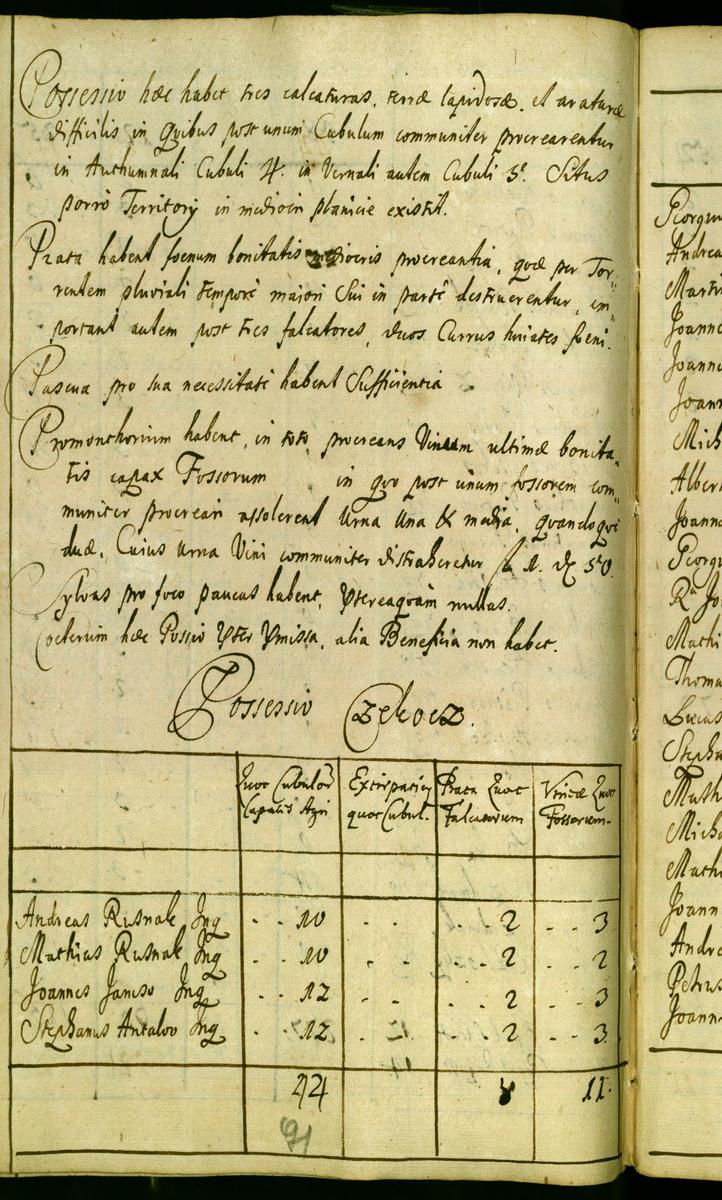 Possessio hæc habet tres calcaturas, terræ lapidosæ, et araturæ
difficilis in quibus post unum Cubulum communiter procrearentur
in Authumnali Cubuli 4. in Vernali autem Cubuli 5. Situs
porro Territorij in mediocri planicie existit.
Prata habent foenum bonitatis mediocris procreantia, quæ per Tor-
rentem pluviali tempore maiori sui in parte destruerentur, im-
portant autem post tres falcatores, duos Currus huiates foeni.
Pascua pro sua necessitate habent Sufficientia
Promonthorium habent, in toto procreans Vinum ultimæ bonita-
tis capax Fossorum in quo post unum fossorem com-
muniter procreari assolerent Urna Una & media, quandoque
duæ. Cuius Urna Vini communiter distraheretur f 1. 50.
Sylvas pro foco paucas habent, ptereaquam nullas.
Coeterum hæc Possio pter pmissa, alia Beneficia non habet.
Possessio Czekocz.
Quot Cubulor Capatis Agri
Extirpaciy quot Cubul.
Prata Quot Falcatorum
Vineæ Quot Fossorum.
Andreas Rusnak Inq - - 10 - - - - 2 - - 3
Mathias Rusnak Inq - - 10 - - - - 2 - - 2
Joannes Janiso Inq - - 12 - - - - 2 - - 3
Stephanus Antalov Inq - - 12 - - - - 2 - - 3
44 8 11.
91
Georgiu
Andrea
Marti
Joanne
Joanne
Joann
Mich
Alber
Joanne
Georgi
Jo
Mathi
Thoma
Lucas
Steph
Math
Micha
Mathi
Joann
Andre
Petrus
Joann